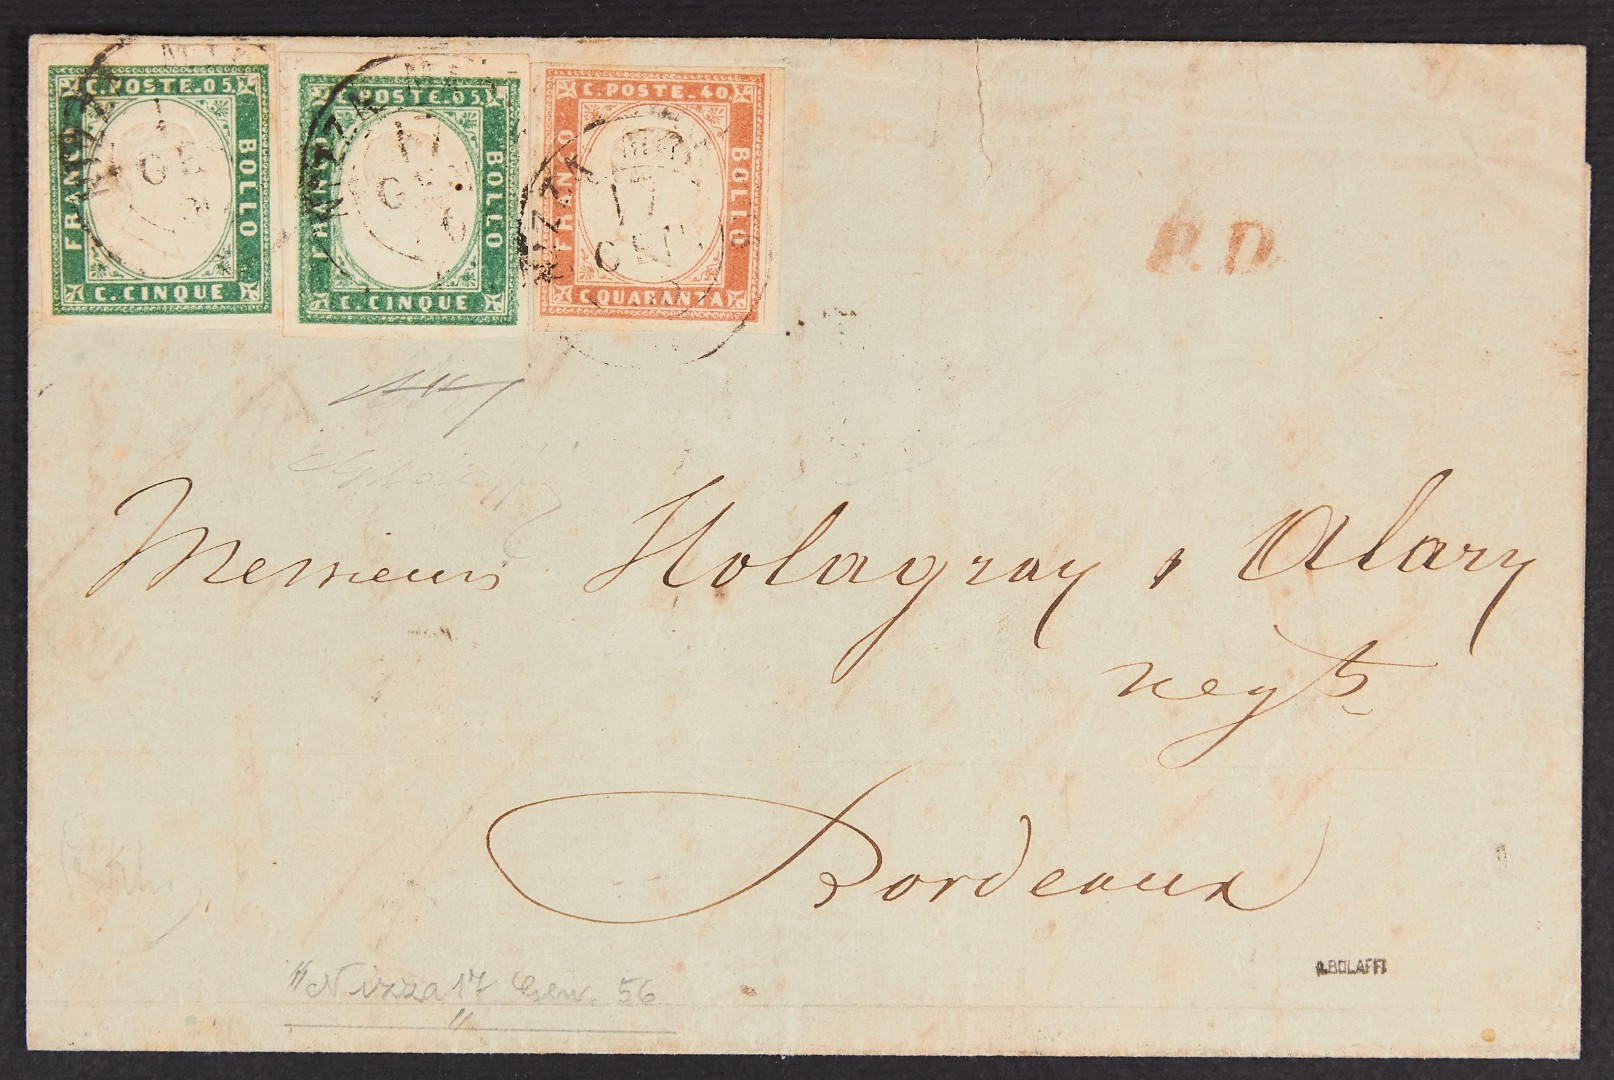 C. POSTE. 05.
FRANCO
BOLLO
C. CINQUE
C. POSTE. 05.
BOLLO
C. CINQUE
C. POSTE. 40.
FRANCO
BOLLO
C. QUARANTA
NIZZA
17
GEN
NIZZA
17
GEN
P.D.
Messieurs Holagray & Alary
negts
Bordeaux
"Nizza 17 Gen. 56
A.BOLAFFI